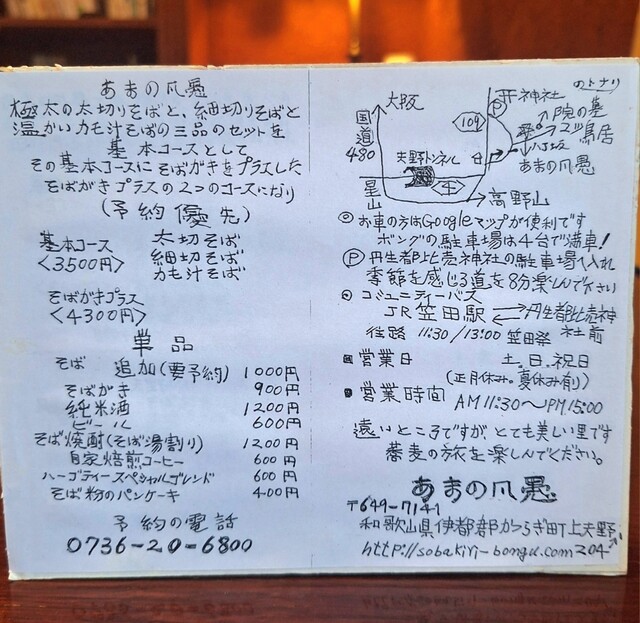 あまの爪愚
極太の太切りそばと、細切りそばと
温かいカモ汁そばの三品のセットを
基本コースとして
その基本コースにそばがきをプラスした
そばがきプラスの2つのコースになり
(予約優先)
基本コース
<3500円>
太切そば
細切そば
カモ汁そば
そばがきプラス
<4300円>
単品
そば 追加(要予約) 1000円
そばがき 900円
純米酒 1200円
ビール 600円
そば焼酎(そば湯割り) 1200円
自家焙煎コーヒー 600円
ハーゴティースペシャルブレンド 600円
そば粉のパンケーキ 400円
予約の電話
0736-20-6800
大阪
国道
480
天野トンネル
109
P
神社
のトナリ
院の墓
二ツ鳥居
八丁坂
あまの爪愚
高野山
◎お車の方はGoogleマップが便利です
ボングの駐車場は4台で満車!
Ⓟ丹生都比売神社の駐車場へ入れ
季節を感じる道を8分楽しんで下さい
◎コミュニティーバス
JR笠田駅 ⟷ 丹生都比売神社前
往路 11:30/13:00 笠田発
営業日 土.日.祝日
(正月休み.夏休み有り)
営業時間 AM11:30〜PM15:00
遠いところですが、とても美しい里です
蕎麦の旅を楽しんでください。
あまの爪愚
〒649-7141
和歌山県伊都郡かつらぎ町上天野
204
http://sobakiri-bongu.com